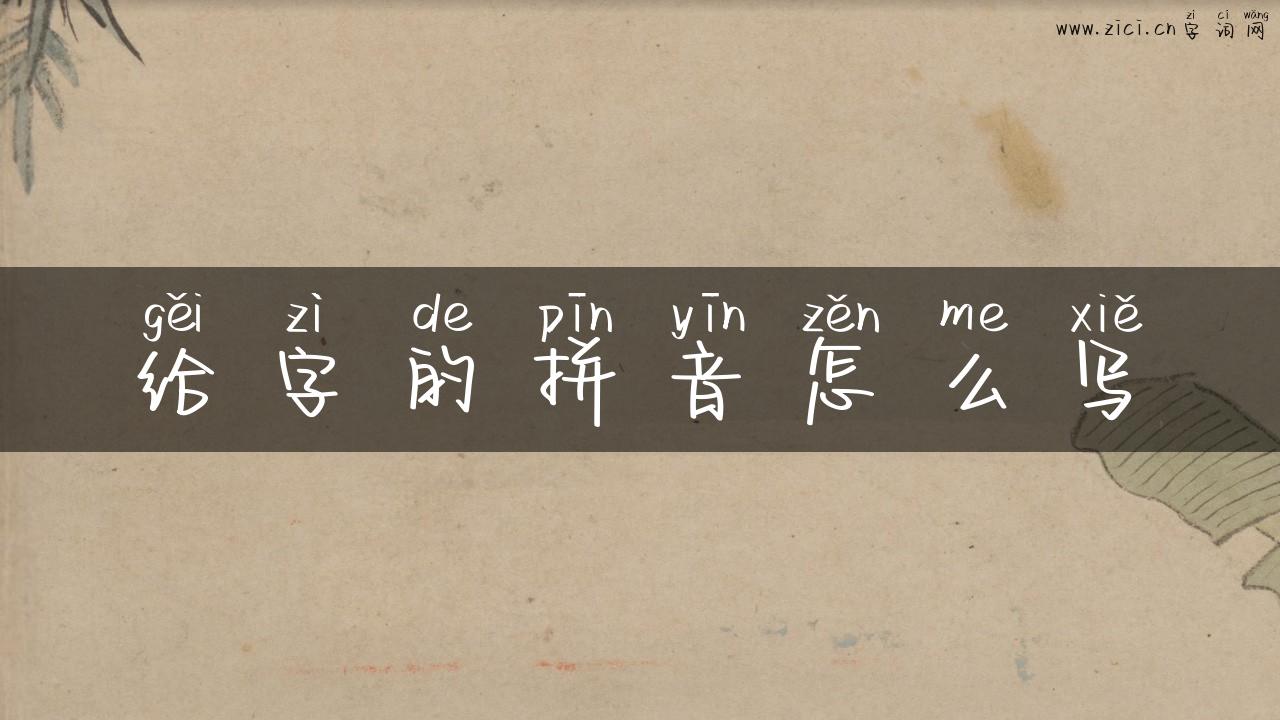 zì cí wǎng
www.zici.cn 字 词 网
gěi zì de pīn yīn zěn me xiě
给 字 的 拼 音 怎 么 写